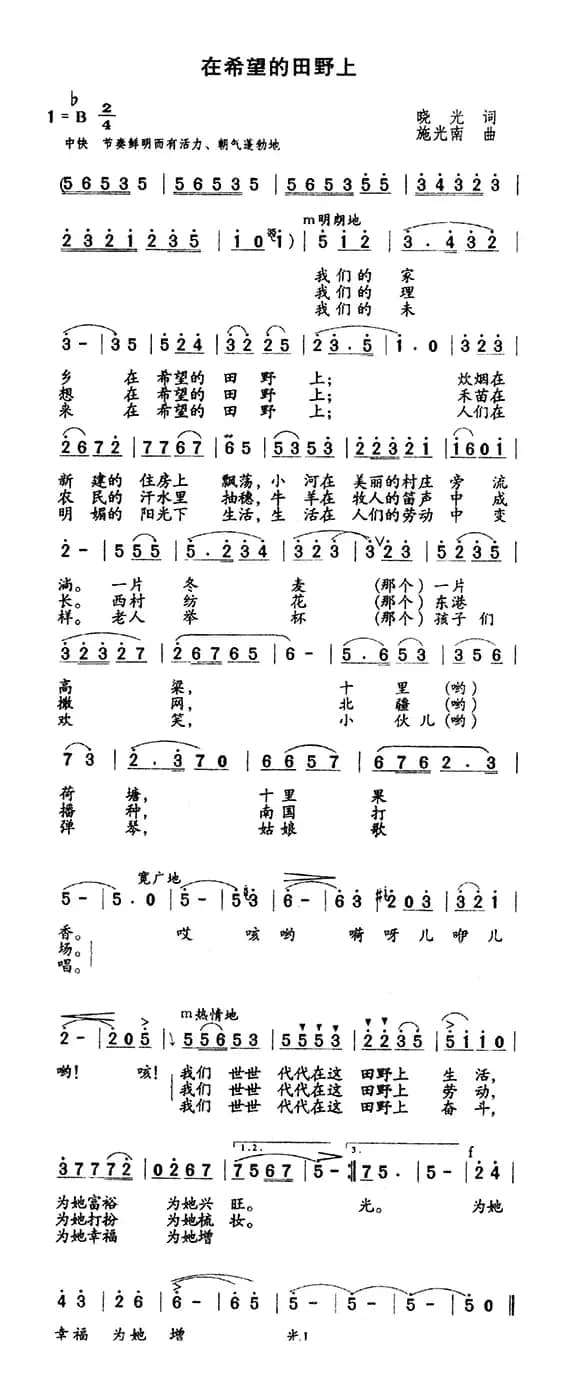 在希望的田野上
1=♭B 2/4
晓光 词
施光南 曲
中快 节奏鲜明而有活力、朝气蓬勃地
(56535 | 56535 | 565355 | 34323 |
2321235 | 10 1) | 512 | 3.432 |
m明朗地
我们的 家
我们的 理
我们的 未
3- | 35 | 524 | 32 25 | 23.5 | 1.0 | 323 |
乡 在 希望的 田 野 上; 炊烟在
想 在 希望的 田 野 上; 禾苗在
来 在 希望的 田 野 上; 人们在
2672 | 7767 | 65 | 5353 | 22321 | 1601 |
新 建的 住房上 飘荡,小 河在 美丽的村庄 旁 流
农 民的 汗水里 抽穗,牛 羊在 牧人的笛声 中 成
明 媚的 阳光下 生活,生 活在 人们的劳动 中 变
2- | 555 | 5.234 | 323 | 3 23 | 5235 |
淌。一片 冬 麦 (那个)一片
长。西村 纺 花 (那个)东港
样。老人 举 杯 (那个)孩子 们
32327 | 26765 | 6- | 5.653 | 356 |
高 粱, 十 里(哟)
撒 网, 北 疆(哟)
欢 笑, 小 伙儿(哟)
73 | 2.370 | 6657 | 6762.3 |
荷 塘, 十里 果
播 种, 南国 打
弹 琴, 姑娘 歌
宽广地
5- | 5.0 | 5- | 53 | 6- | 63 | 203 | 321 |
香。 哎 咳哟 嗬 呀 儿 咿 儿
场。
唱。
m热情地
2- | 205 | 55653 | 5553 | 2235 | 5110 |
哟! 咳! 我们 世世 代代在这 田野上 生 活,
我们 世世 代代在这 田野上 劳 动,
我们 世世 代代在这 田野上 奋 斗,
1.2. 3. f
37772 | 0267 | 7567 | 5- :‖ 75. | 5- | 24 |
为她富裕 为她兴 旺。 光。 为她
为她打扮 为她梳 妆。
为她幸福 为她增
43 | 26 | 6- | 65 | 5- | 5- | 5- | 50 ‖
幸福 为她 增 光.1